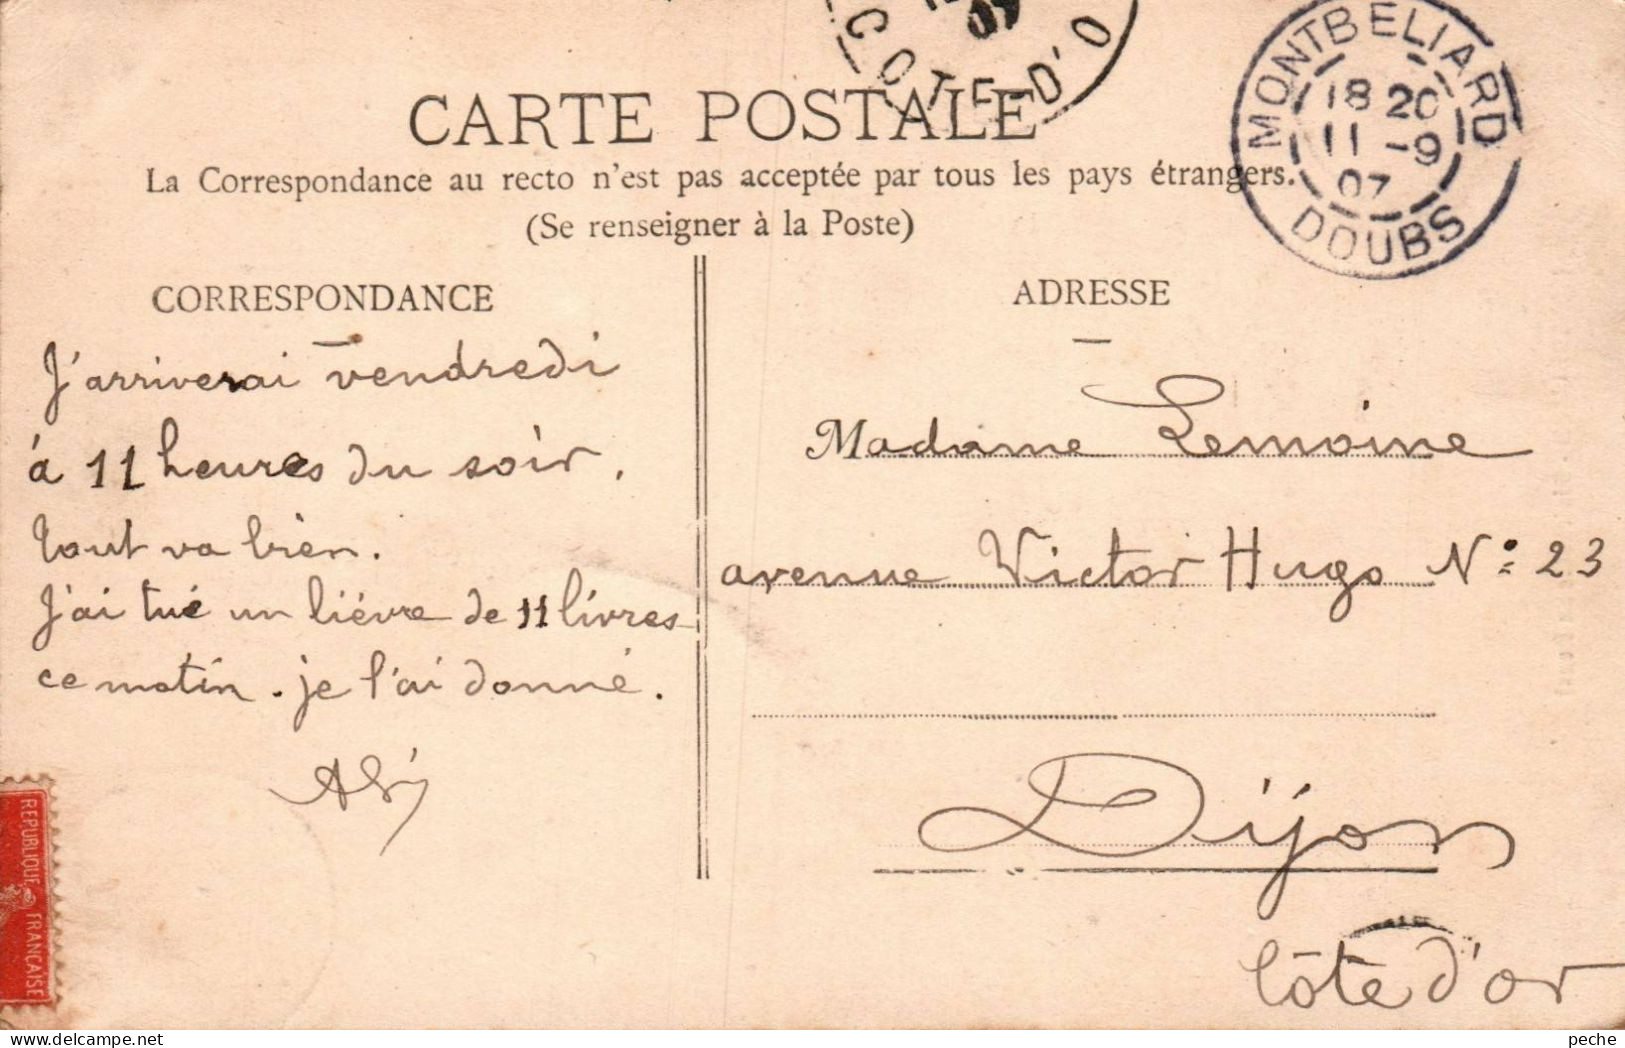 COTE-D'O
07
MONTBELIARD
18 20
11 -9
07
DOUBS
CARTE POSTALE
La Correspondance au recto n'est pas acceptée par tous les pays étrangers.
(Se renseigner à la Poste)
CORRESPONDANCE
J'arriverai vendredi
à 11 heures du soir.
Tout va bien.
J'ai tué un lièvre de 11 livres
ce matin. je l'ai donné.
ADRESSE
Madame Lemoine
avenue Victor Hugo N° 23
Dijon
Côte d'or
REPUBLIQUE FRANCAISE
peche